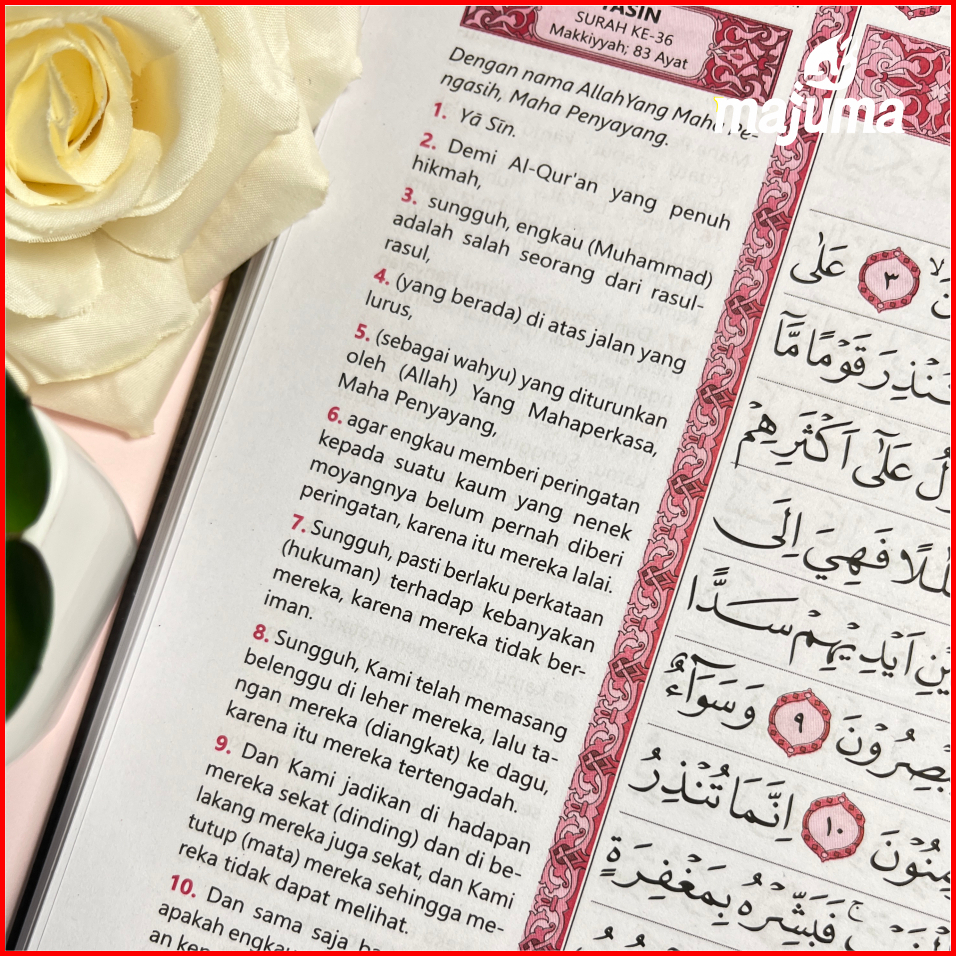 YASIN
SURAH KE-36
Makkiyyah; 83 Ayat
Dengan nama Allah Yang Maha Pe-
ngasih, Maha Penyayang.
1. Yā Sīn.
2. Demi Al-Qur'an yang penuh
hikmah,
3. sungguh, engkau (Muhammad)
adalah salah seorang dari rasul-
rasul,
4. (yang berada) di atas jalan yang
lurus,
5. (sebagai wahyu) yang diturunkan
oleh (Allah) Yang Mahaperkasa,
Maha Penyayang,
6. agar engkau memberi peringatan
kepada suatu kaum yang nenek
moyangnya belum pernah diberi
peringatan, karena itu mereka lalai.
7. Sungguh, pasti berlaku perkataan
(hukuman) terhadap kebanyakan
mereka, karena mereka tidak ber-
iman.
8. Sungguh, Kami telah memasang
belenggu di leher mereka, lalu ta-
ngan mereka (diangkat) ke dagu,
karena itu mereka tertengadah.
9. Dan Kami jadikan di hadapan
mereka sekat (dinding) dan di be-
lakang mereka juga sekat, dan Kami
tutup (mata) mereka sehingga me-
reka tidak dapat melihat.
10. Dan sama saja
apakah engkau
majuma
٣ عَلٰى
قَوْمًا مَّآ
عَلٰٓى اَكْثَرِهِمْ
فَهِيَ اِلَى
اَيْدِيْهِمْ سَدًّا
٩ وَسَوَاۤءٌ
١٠ اِنَّمَا تُنْذِرُ
فَبَشِّرْهُ بِمَغْفِرَةٍ